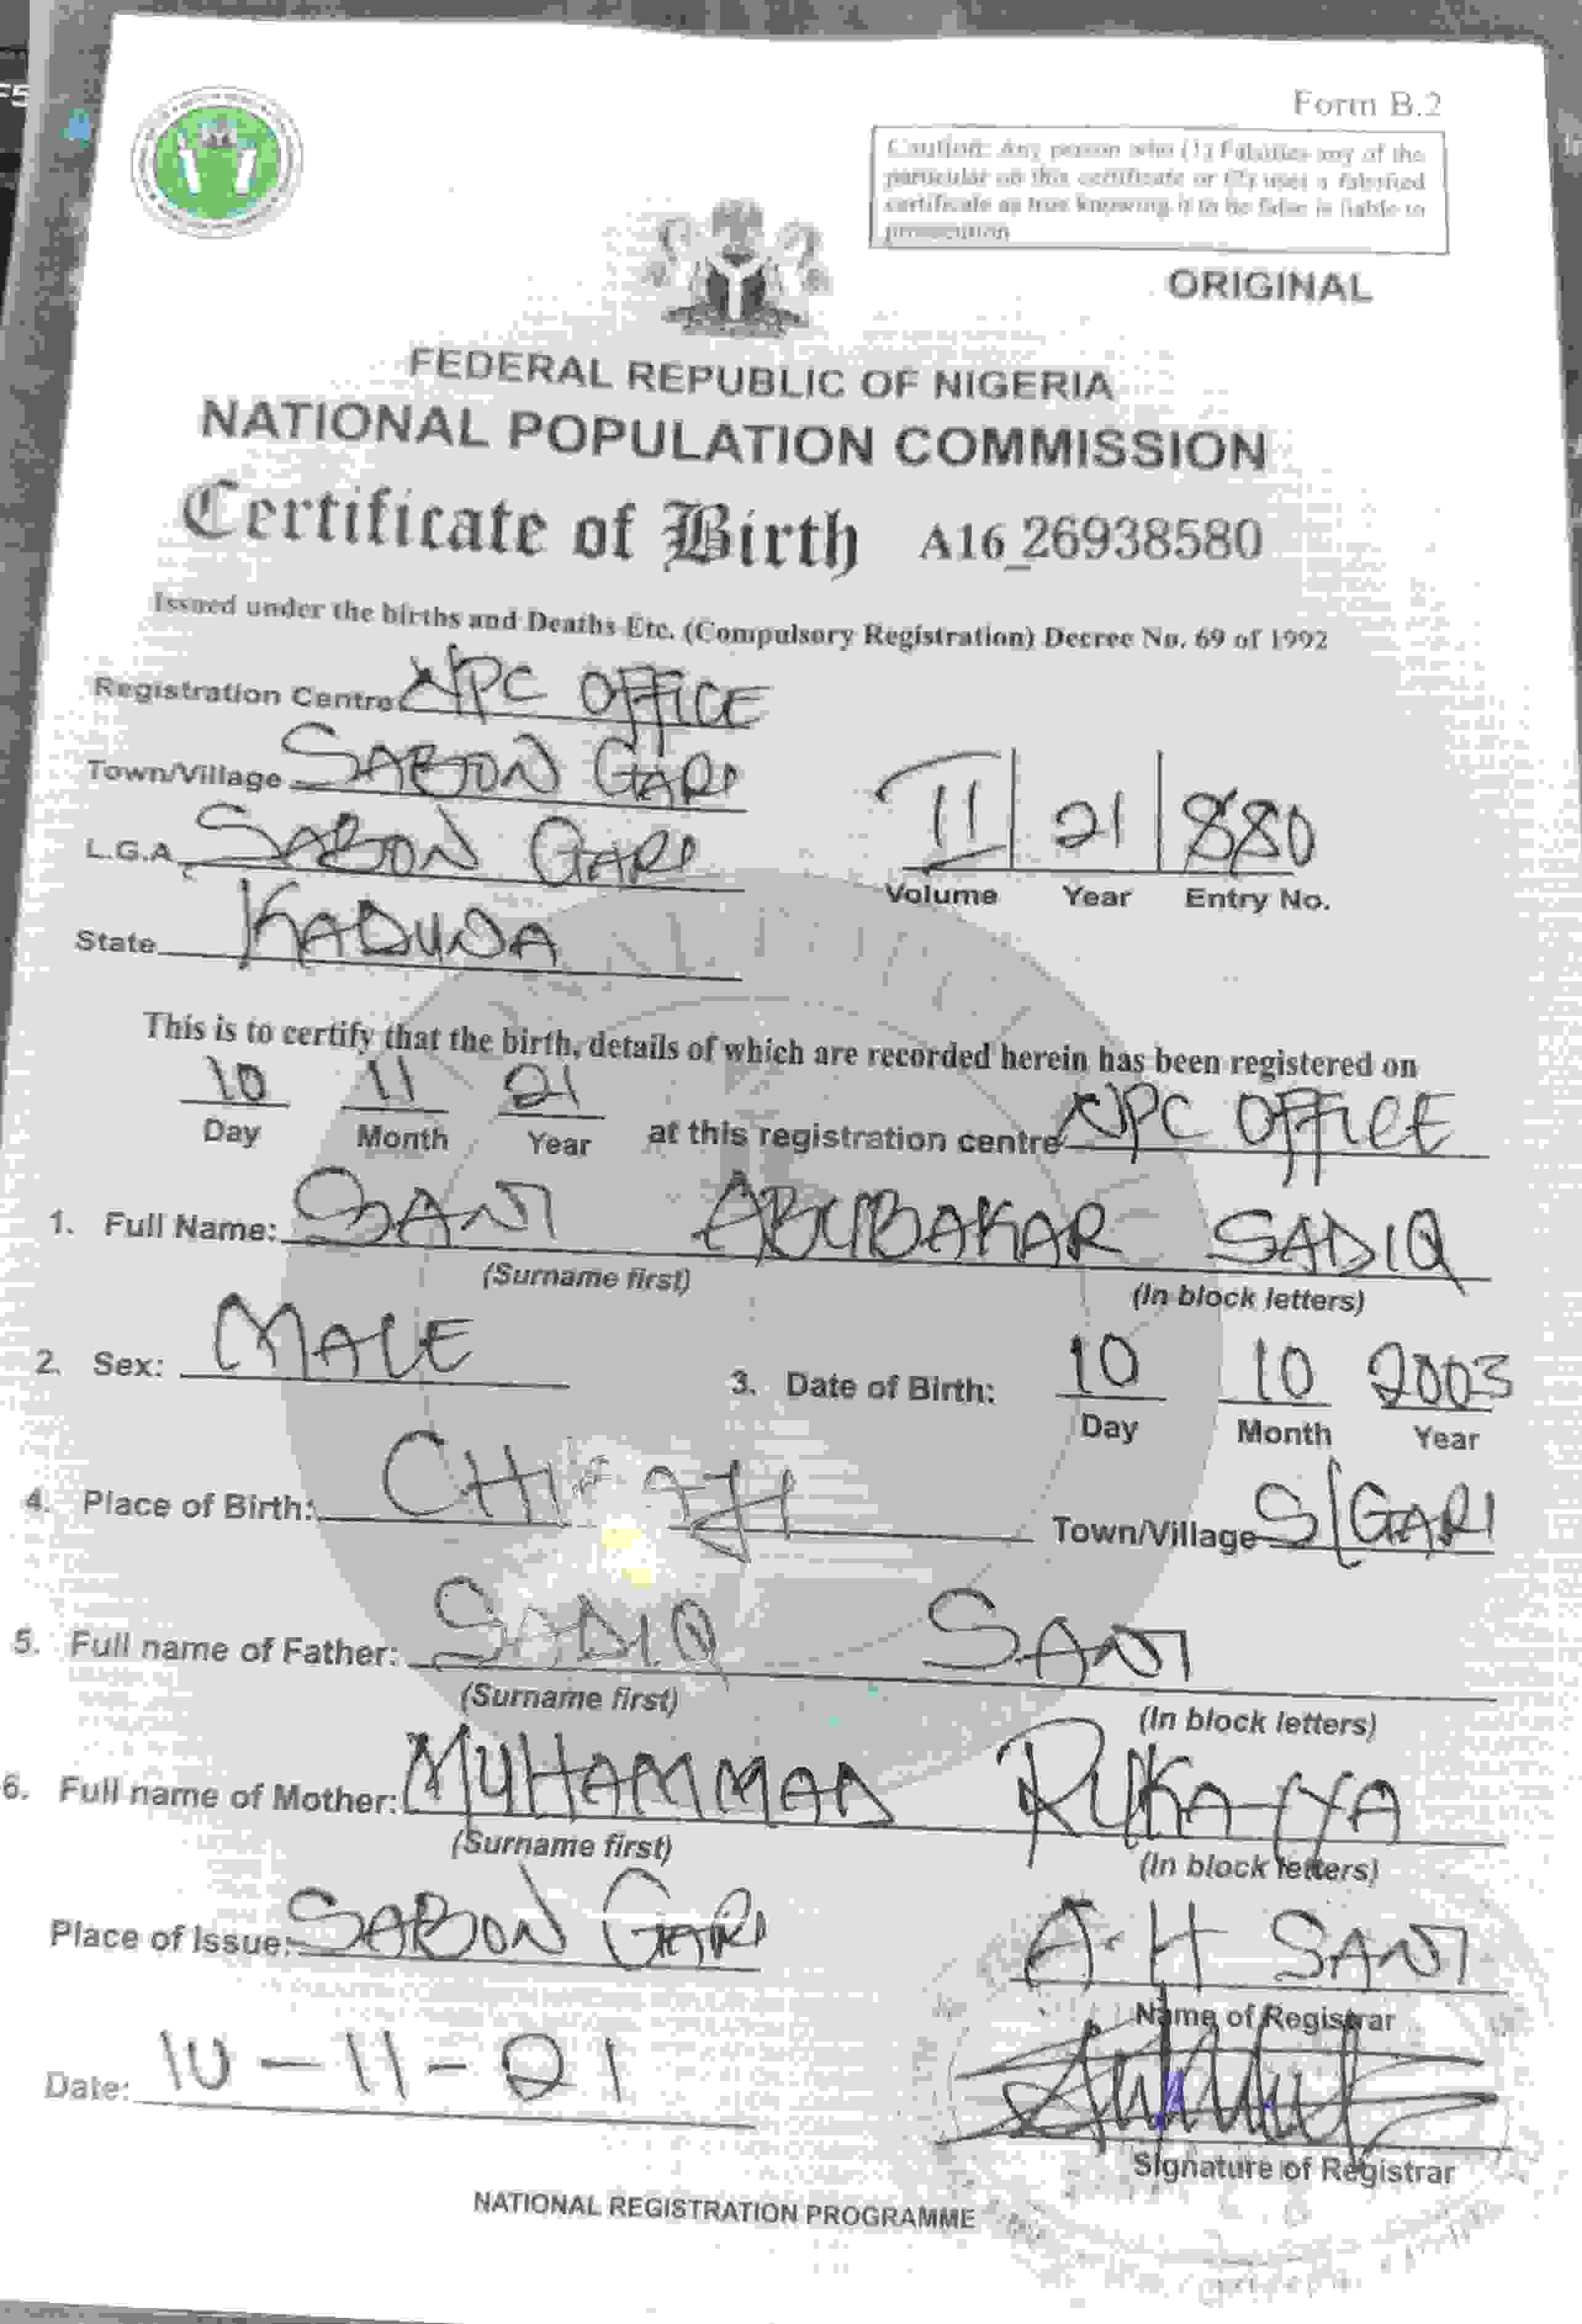 Form B.2
Caution: Any person who (1) Falsifies any of the
particular on this certificate or (2) uses a falsified
certificate as true knowing it to be false is liable to
prosecution
ORIGINAL
FEDERAL REPUBLIC OF NIGERIA
NATIONAL POPULATION COMMISSION
Certificate of Birth A16_26938580
Issued under the births and Deaths Etc. (Compulsory Registration) Decree No. 69 of 1992
Registration Centre NPC OFFICE
Town/Village SABON GARI
L.G.A SABON GARI
II 21 880
Volume Year Entry No.
State KADUNA
This is to certify that the birth, details of which are recorded herein has been registered on
10 11 21 at this registration centre NPC OFFICE
Day Month Year
1. Full Name: SANI ABUBAKAR SADIQ
(Surname first) (In block letters)
2. Sex: MALE 3. Date of Birth: 10 10 2003
Day Month Year
4. Place of Birth: Town/Village S/GARI
5. Full name of Father: SADIQ SANI
(Surname first) (In block letters)
6. Full name of Mother: MUHAMMAD RUKAYYA
(Surname first) (In block letters)
Place of Issue: SABON GARI A.H SANI
Name of Registrar
Date: 10-11-21
Signature of Registrar
NATIONAL REGISTRATION PROGRAMME